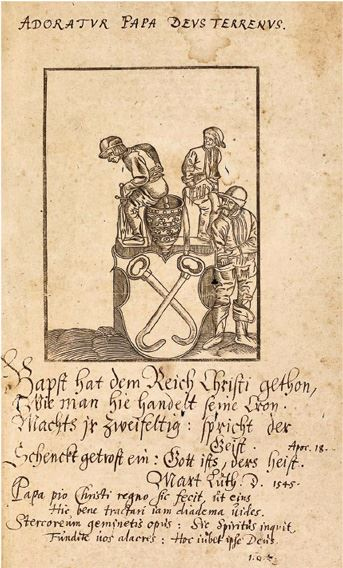 ADORATVR PAPA DEVS TERRENVS.
Bapst hat dem Reich Christi gethon,
Wie man hie handelt seine Cron.
Machts jr zweifeltig: spricht der
Geist. Apoc. 18.
Schenckt getrost ein: Gott ists, ders heist.
Mart. Luth. D. 1545.
Papa pio Christi regno sic fecit, ut eius
Hic bene tractari iam diadema uides.
Stercoreum geminetis opus: Sic Spiritus inquit
Fundite uos alacres: Hoc iubet ipse Deus.